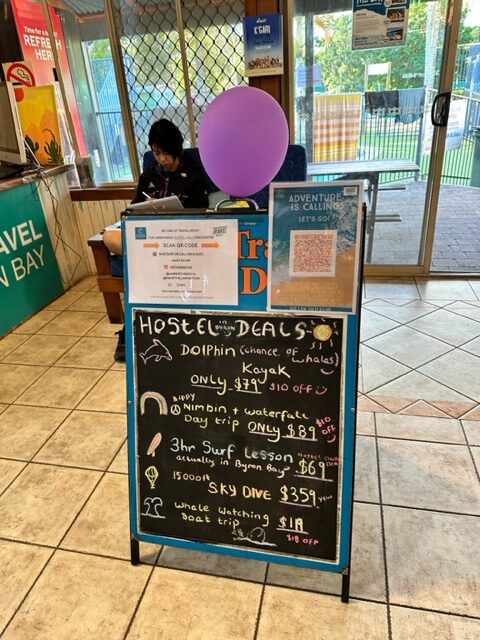 Time for a
REFRE
HERE
K'GARI
TRAVEL
N BAY
NO ONE AT TRAVEL DESK?
SCAN QR CODE
ADVENTURE
IS CALLING
LET'S GO!
Tra
D
HOSTEL IN BYRON DEALS
DOLPHIN (chance of whales)
Kayak
ONLY $79 $10 OFF
HIPPY
Nimbin + waterfall
Day trip ONLY $89 $10 OFF
3hr Surf Lesson
actually in Byron Bay $69
15000ft
SKY DIVE $359
Whale Watching
Boat trip
$18 OFF